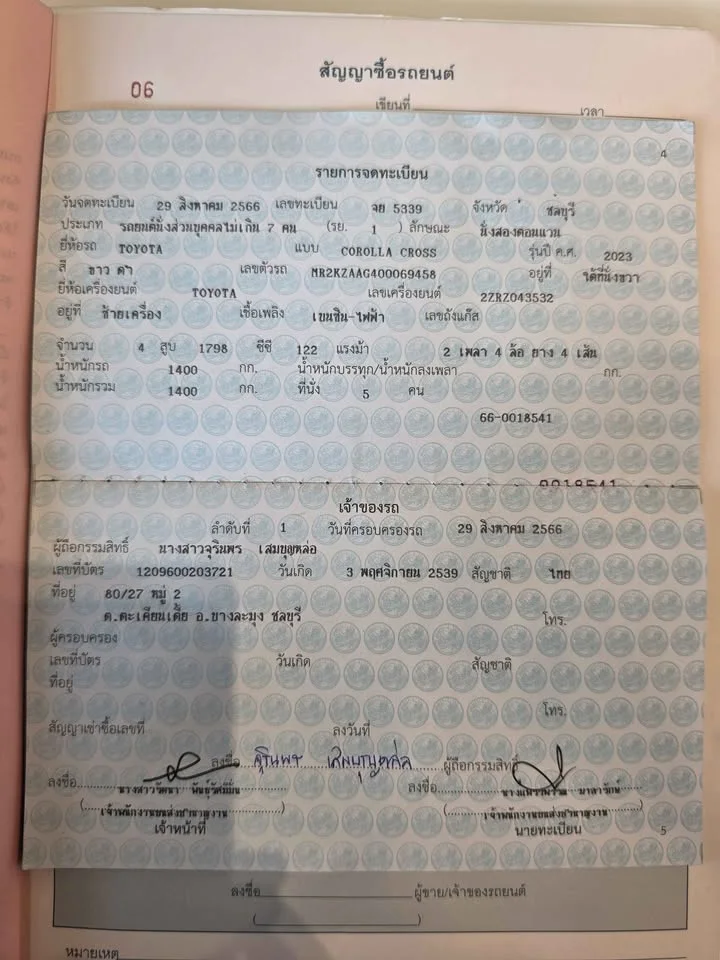 สัญญาซื้อรถยนต์
06
เขียนที่ เวลา
4
รายการจดทะเบียน
วันจดทะเบียน 29 สิงหาคม 2566 เลขทะเบียน จย 5339 จังหวัด ชลบุรี
ประเภท รถยนต์นั่งส่วนบุคคลไม่เกิน 7 คน (รย. 1 ) ลักษณะ นั่งสองตอนแวน
ยี่ห้อรถ TOYOTA แบบ COROLLA CROSS รุ่นปี ค.ศ. 2023
สี ขาว ดำ เลขตัวรถ MR2KZAAG400069458 อยู่ที่ ใต้ที่นั่งขวา
ยี่ห้อเครื่องยนต์ TOYOTA เลขเครื่องยนต์ 2ZRZ043532
อยู่ที่ ซ้ายเครื่อง เชื้อเพลิง เบนซิน-ไฟฟ้า เลขถังแก๊ส
จำนวน 4 สูบ 1798 ซีซี 122 แรงม้า 2 เพลา 4 ล้อ ยาง 4 เส้น
น้ำหนักรถ 1400 กก. น้ำหนักบรรทุก/น้ำหนักลงเพลา กก.
น้ำหนักรวม 1400 กก. ที่นั่ง 5 คน
66-0018541
0018541
เจ้าของรถ
ลำดับที่ 1 วันที่ครอบครองรถ 29 สิงหาคม 2566
ผู้ถือกรรมสิทธิ์ นางสาวจุรินพร เสมบุญหล่อ
เลขที่บัตร 1209600203721 วันเกิด 3 พฤศจิกายน 2539 สัญชาติ ไทย
ที่อยู่ 80/27 หมู่ 2
ต.ตะเคียนเตี้ย อ.บางละมุง ชลบุรี
โทร.
ผู้ครอบครอง
เลขที่บัตร วันเกิด สัญชาติ
ที่อยู่
โทร.
สัญญาเช่าซื้อเลขที่ ลงวันที่
ลงชื่อ จุรินพร เสมบุญหล่อ ผู้ถือกรรมสิทธิ์
ลงชื่อ ลงชื่อ
นางสาววัฒนา
เจ้าพนักงานขนส่งชำนาญงาน เจ้าพนักงานขนส่งชำนาญงาน
เจ้าหน้าที่ นายทะเบียน
5
ลงชื่อ ผู้ขาย/เจ้าของรถยนต์
หมายเหตุ